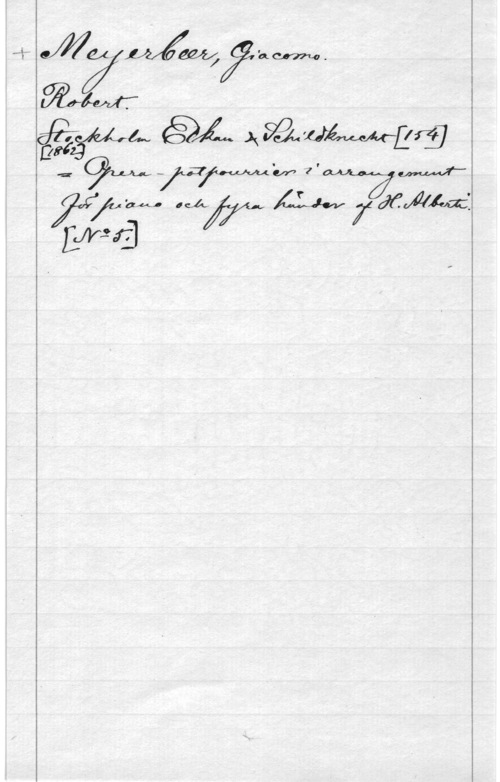 + Meyerbeer, Giacomo.
Robert.
Stockholm Elkan & Schildknecht [154]
[1862]
= Opera-potpourrier i arrangement
för piano och fyra händer af H. Alberti.
[Nº 5.]